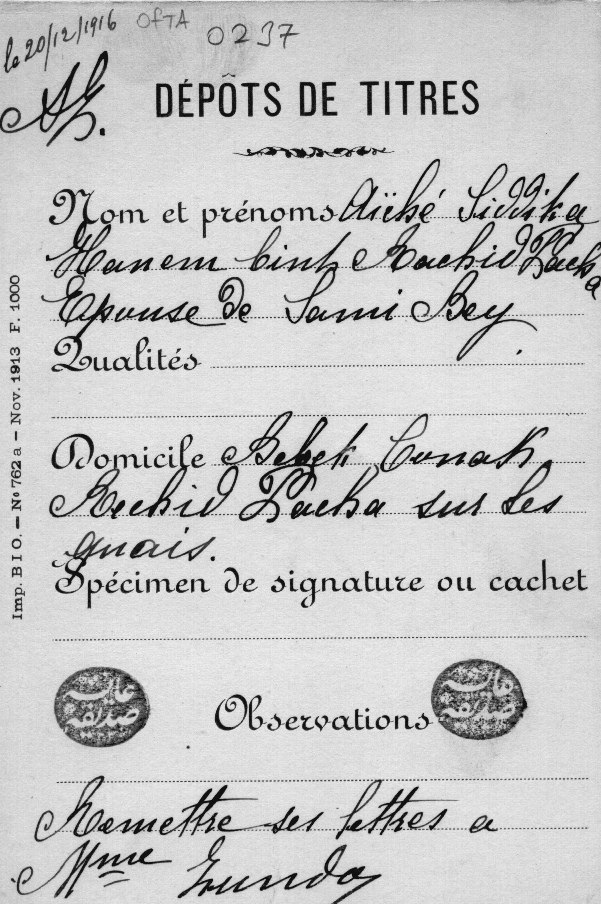 le 20/12/1916 OFTA 0237
DÉPÔTS DE TITRES
Nom et prénoms Aïché Siddika
Hanem bint Rachid Pacha
Epouse de Sami Bey
Qualités
Domicile Bebek, Conak
Rechid Pacha sur les
quais.
Spécimen de signature ou cachet
عائشه
صديقه
Observations
عائشه
صديقه
Remettre ses lettres a
Mme
Imp. BIO. — No 762 a — Nov. 1913 F. 1000